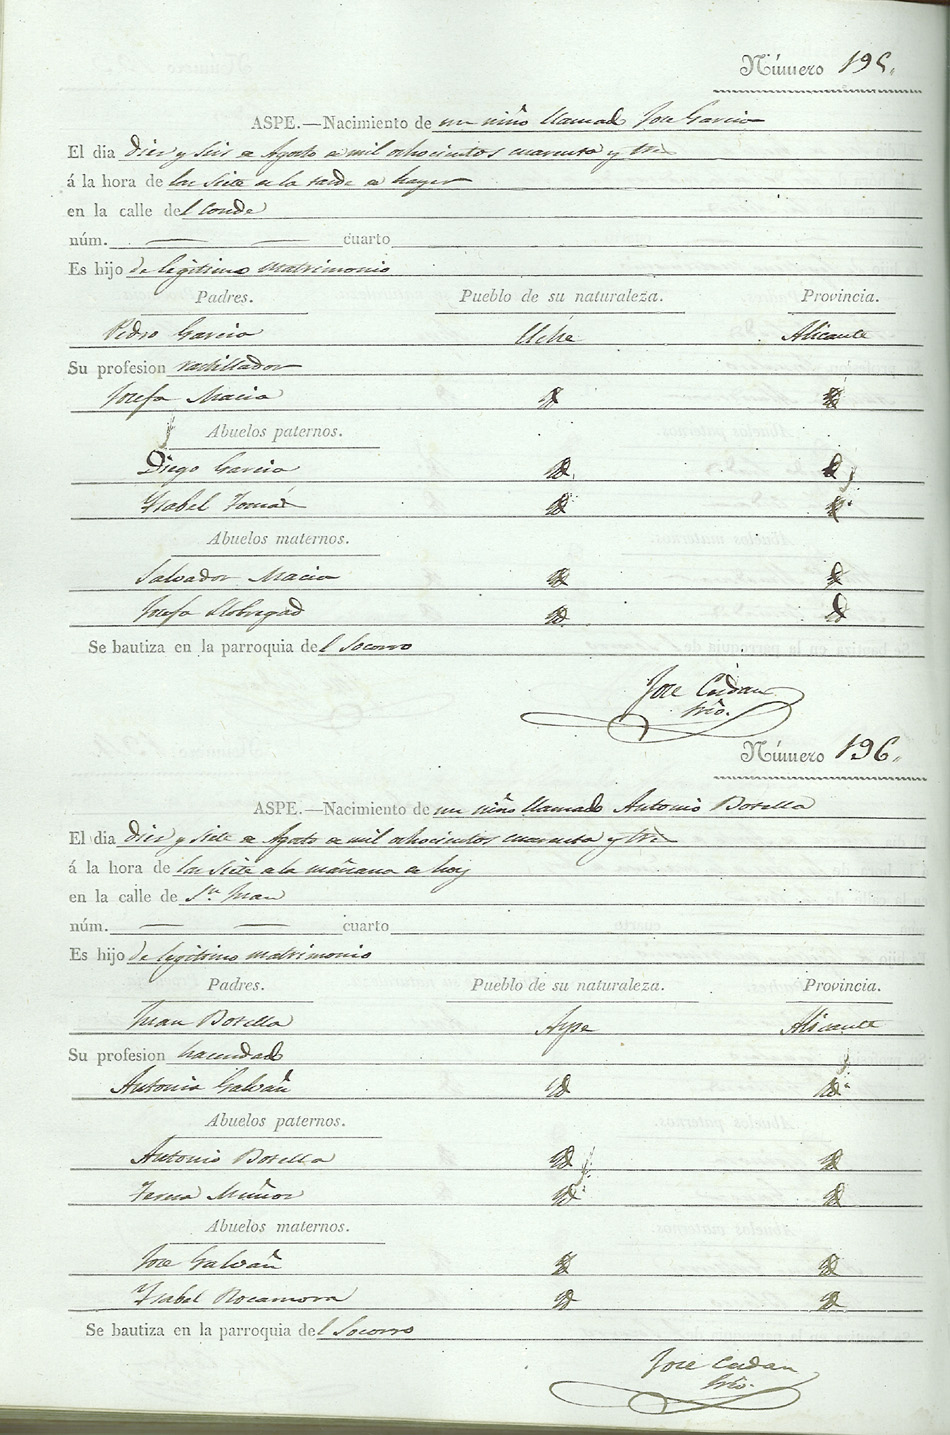 Número 195.
ASPE.—Nacimiento de un niño llamado Jose Garcia
El dia diez y seis de Agosto de mil ochocientos cuarenta y tres
á la hora de las siete de la tarde de hayer
en la calle del Conde
núm. cuarto
Es hijo de legitimo matrimonio
Padres. Pueblo de su naturaleza. Provincia.
Pedro Garcia Elche Alicante
Su profesion rastillador
Josefa Macia Yd Yd
Abuelos paternos.
Diego Garcia Yd Yd
Ysabel Tomas Yd Yd
Abuelos maternos.
Salvador Macia Yd Yd
Josefa Llobregad Yd Yd
Se bautiza en la parroquia del Socorro
Jose
Srio.
Número 196.
ASPE.—Nacimiento de un niño llamado Antonio Botella
El dia diez y siete de Agosto de mil ochocientos cuarenta y tres
á la hora de las siete de la mañana de hoy
en la calle de Sn. Juan
núm. cuarto
Es hijo de legitimo matrimonio
Padres. Pueblo de su naturaleza. Provincia.
Juan Botella Aspe Alicante
Su profesion hacendado
Antonia Galvañ Yd Yd
Abuelos paternos.
Antonio Botella Yd Yd
Teresa Muñoz Yd Yd
Abuelos maternos.
Jose Galvañ Yd Yd
Ysabel Rocamora Yd Yd
Se bautiza en la parroquia del Socorro
Jose
Srio.